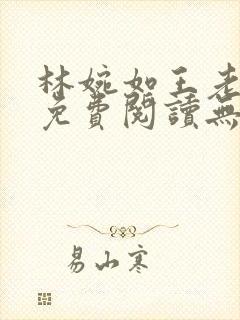 林婉如王老
免費閱讀無
易山寒